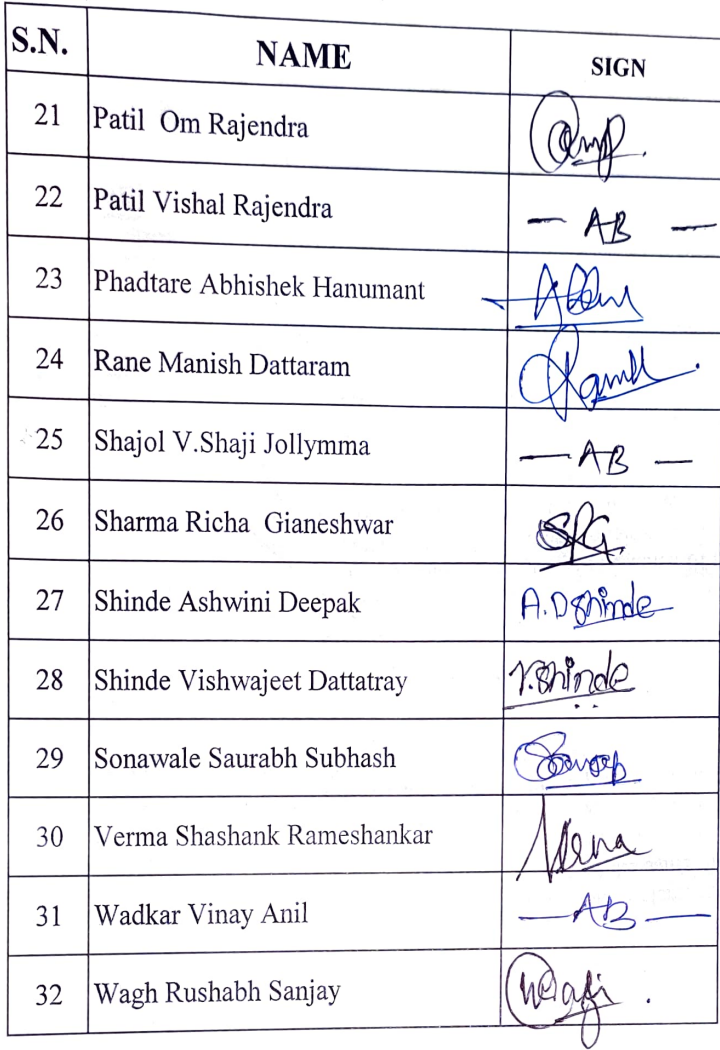 S.N. NAME SIGN
21 Patil Om Rajendra
22 Patil Vishal Rajendra — AB —
23 Phadtare Abhishek Hanumant
24 Rane Manish Dattaram
25 Shajol V.Shaji Jollymma — AB —
26 Sharma Richa Gianeshwar SRG
27 Shinde Ashwini Deepak A.Dshinde
28 Shinde Vishwajeet Dattatray V.Shinde
29 Sonawale Saurabh Subhash
30 Verma Shashank Rameshankar
31 Wadkar Vinay Anil — AB —
32 Wagh Rushabh Sanjay